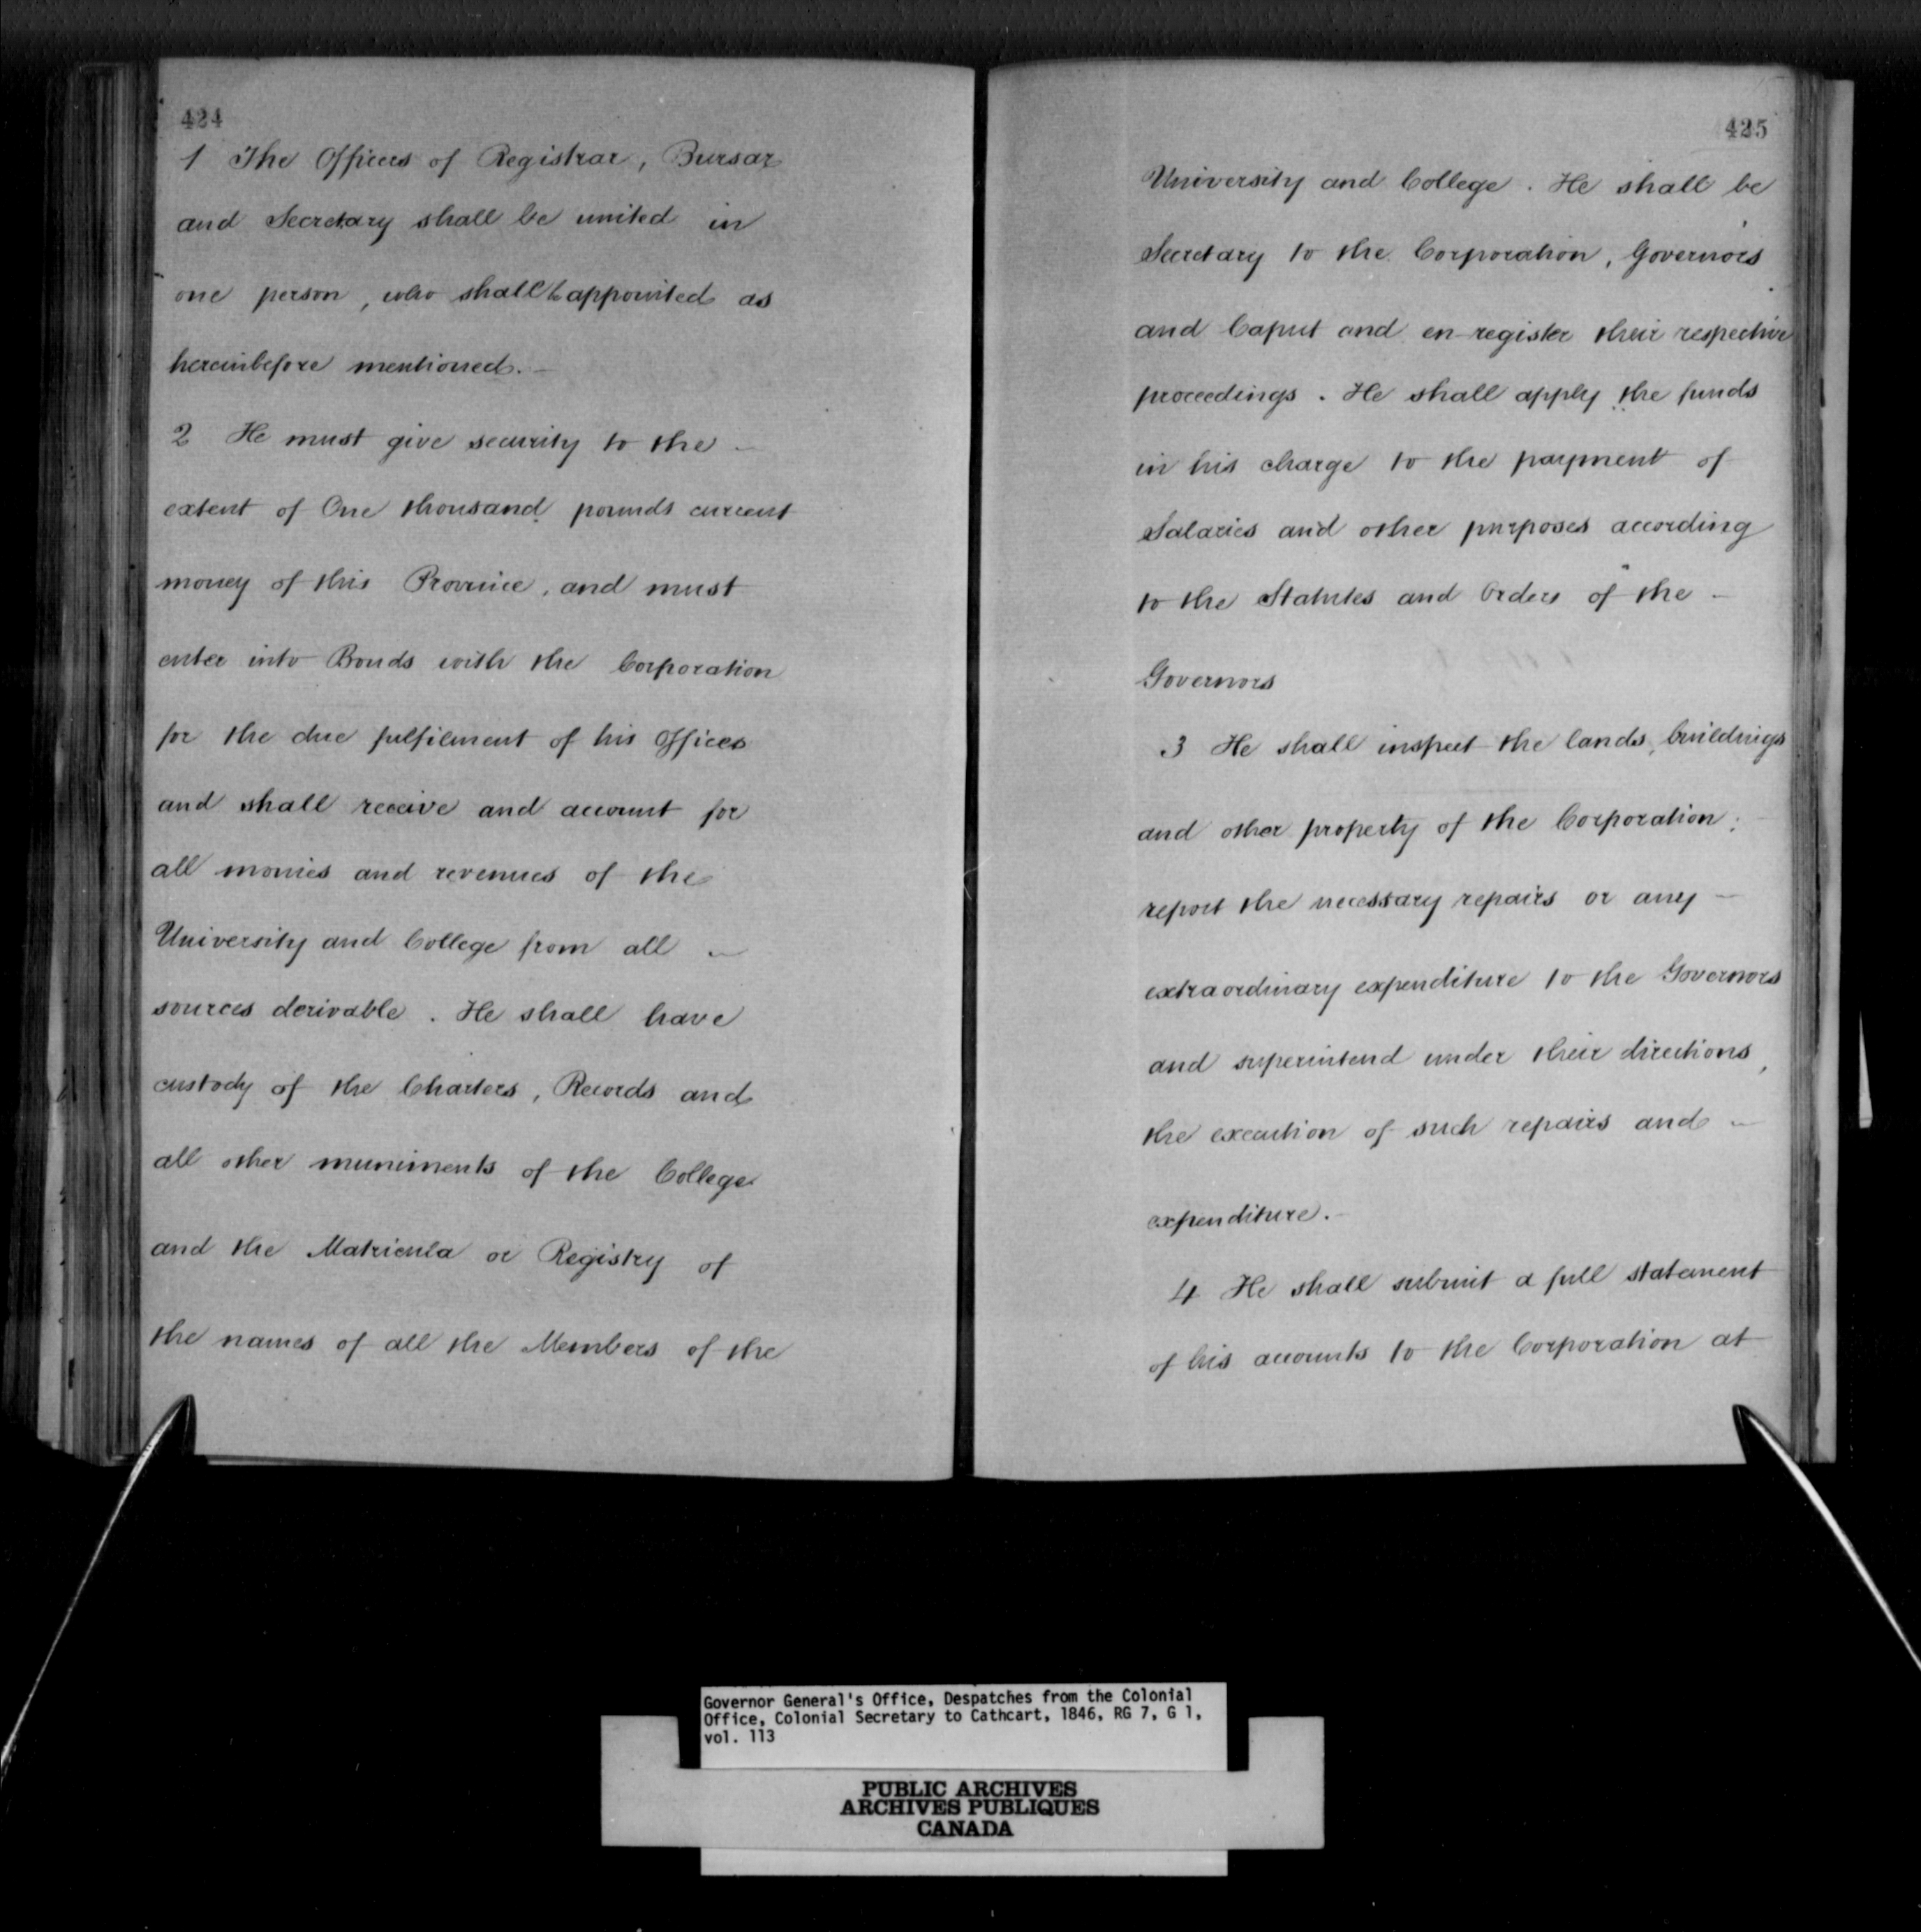 424
1 The Officers of Registrar, Bursar
and Secretary shall be united in
one person, who shall be appointed as
hereinbefore mentioned. —
2 He must give security to the —
extent of One thousand pounds current
money of this Province, and must
enter into Bonds with the Corporation
for the due fulfilment of his Offices
and shall receive and account for
all monies and revenues of the
University and College from all —
sources derivable. He shall have
custody of the Charters, Records and
all other muniments of the College
and the Matricula or Registry of
the names of all the Members of the
425
University and College. He shall be
Secretary to the Corporation, Governors
and Caput and en-register their respective
proceedings. He shall apply the funds
in his charge to the payment of
Salaries and other purposes according
to the Statutes and Orders of the —
Governors
3 He shall inspect the lands, buildings
and other property of the Corporation;
report the necessary repairs or any —
extraordinary expenditure to the Governors
and superintend under their directions,
the execution of such repairs and —
expenditure. —
4 He shall submit a full statement
of his accounts to the Corporation at
Governor General's Office, Despatches from the Colonial
Office, Colonial Secretary to Cathcart, 1846, RG 7, G 1,
vol. 113
PUBLIC ARCHIVES
ARCHIVES PUBLIQUES
CANADA